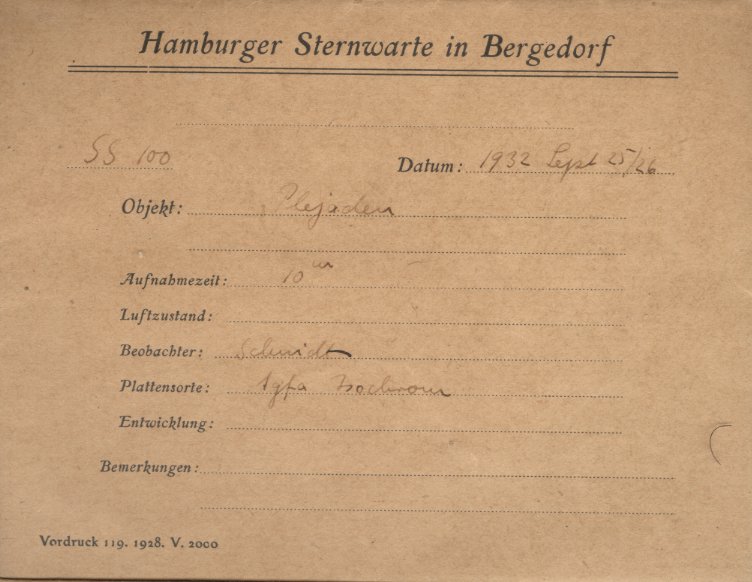 Hamburger Sternwarte in Bergedorf
SS 100 Datum: 1932 Sept 25/26
Objekt: Plejaden
Aufnahmezeit: 10 m
Luftzustand:
Beobachter: Schmidt
Plattensorte: Agfa Isochrom
Entwicklung:
Bemerkungen:
Vordruck 119. 1928. V. 2000